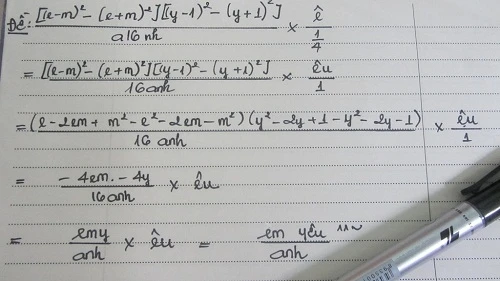 Đề: [(e-m)² - (e+m)²][(y-1)² - (y+1)²] / a16nh × ê / (1/4)
= [(e-m)² - (e+m)²][(y-1)² - (y+1)²] / 16anh × êu / 1
= (e - 2em + m² - e² - 2em - m²)(y² - 2y + 1 - y² - 2y - 1) / 16anh × êu / 1
= - 4em . - 4y / 16anh × êu
= emy / anh × êu = em yêu / anh